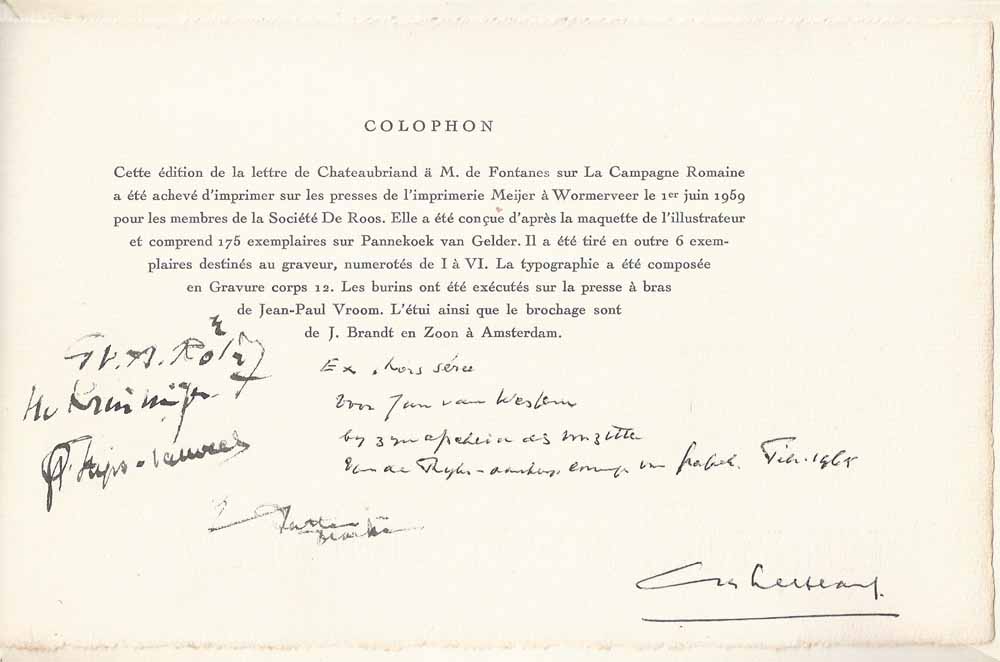 COLOPHON
Cette édition de la lettre de Chateaubriand ä M. de Fontanes sur La Campagne Romaine
a été achevé d'imprimer sur les presses de l'imprimerie Meijer à Wormerveer le 1er juin 1959
pour les membres de la Société De Roos. Elle a été conçue d'après la maquette de l'illustrateur
et comprend 175 exemplaires sur Pannekoek van Gelder. Il a été tiré en outre 6 exem-
plaires destinés au graveur, numerotés de I à VI. La typographie a été composée
en Gravure corps 12. Les burins ont été exécutés sur la presse à bras
de Jean-Paul Vroom. L'étui ainsi que le brochage sont
de J. Brandt en Zoon à Amsterdam.
Ex. hors série
voor Jan van
van de Feb. 1965